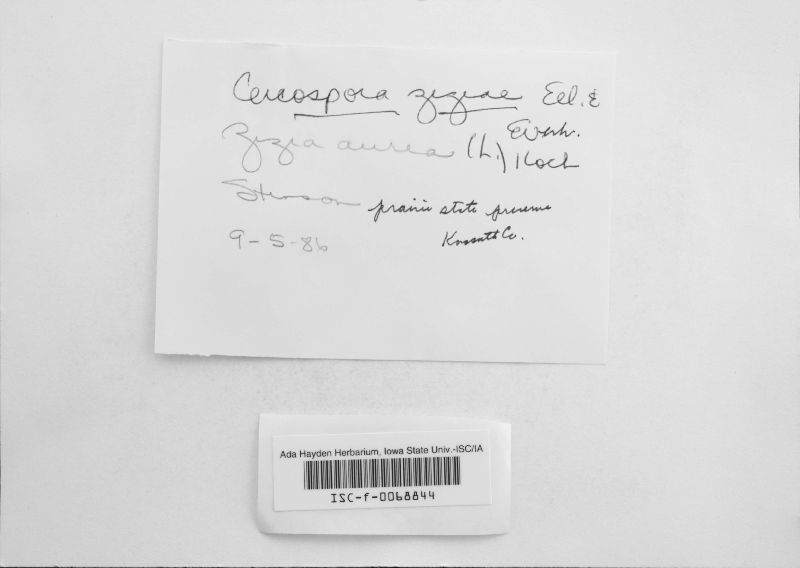 Cercospora ziziae Ell. &
Everh.
Zizia aurea (L.) Koch
Stinson prairie state preserve
9-5-86 Kossuth Co.
Ada Hayden Herbarium, Iowa State Univ.-ISC/IA
ISC-f-0068844